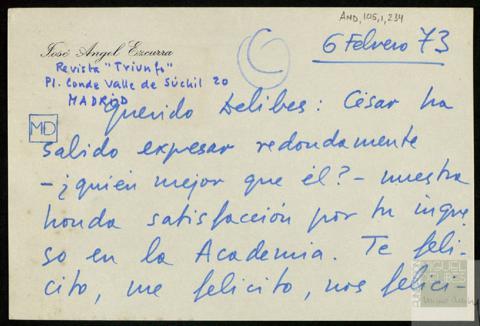 AMD, 105, 1, 234
José Angel Ezcurra
Revista "Triunfo"
Pl. Conde Valle de Súchil 20
MADRID
C
6 Febrero 73
MD
Querido Delibes: César ha
salido expresar redondamente
-¿quién mejor que él?- nuestra
honda satisfacción por tu ingre-
so en la Academia. Te feli-
cito, me felicito, nos felici-